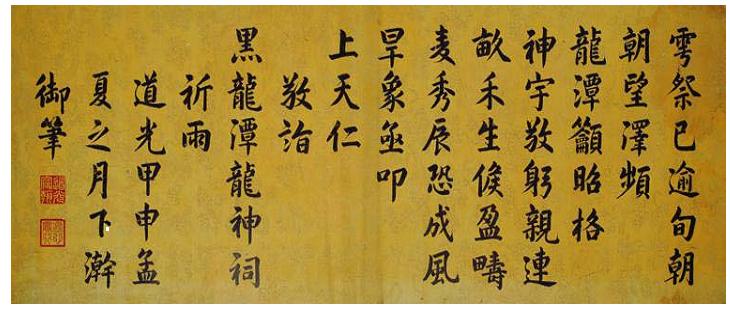 雩祭已逾旬朝
朝望澤頻
龍潭籲昭格
神宇敬躬親連
畝禾生候盈疇
麦秀辰恐成風
旱象亟叩
上天仁
敬詣
黑龍潭龍神祠
祈雨
道光甲申孟
夏之月下澣
御筆